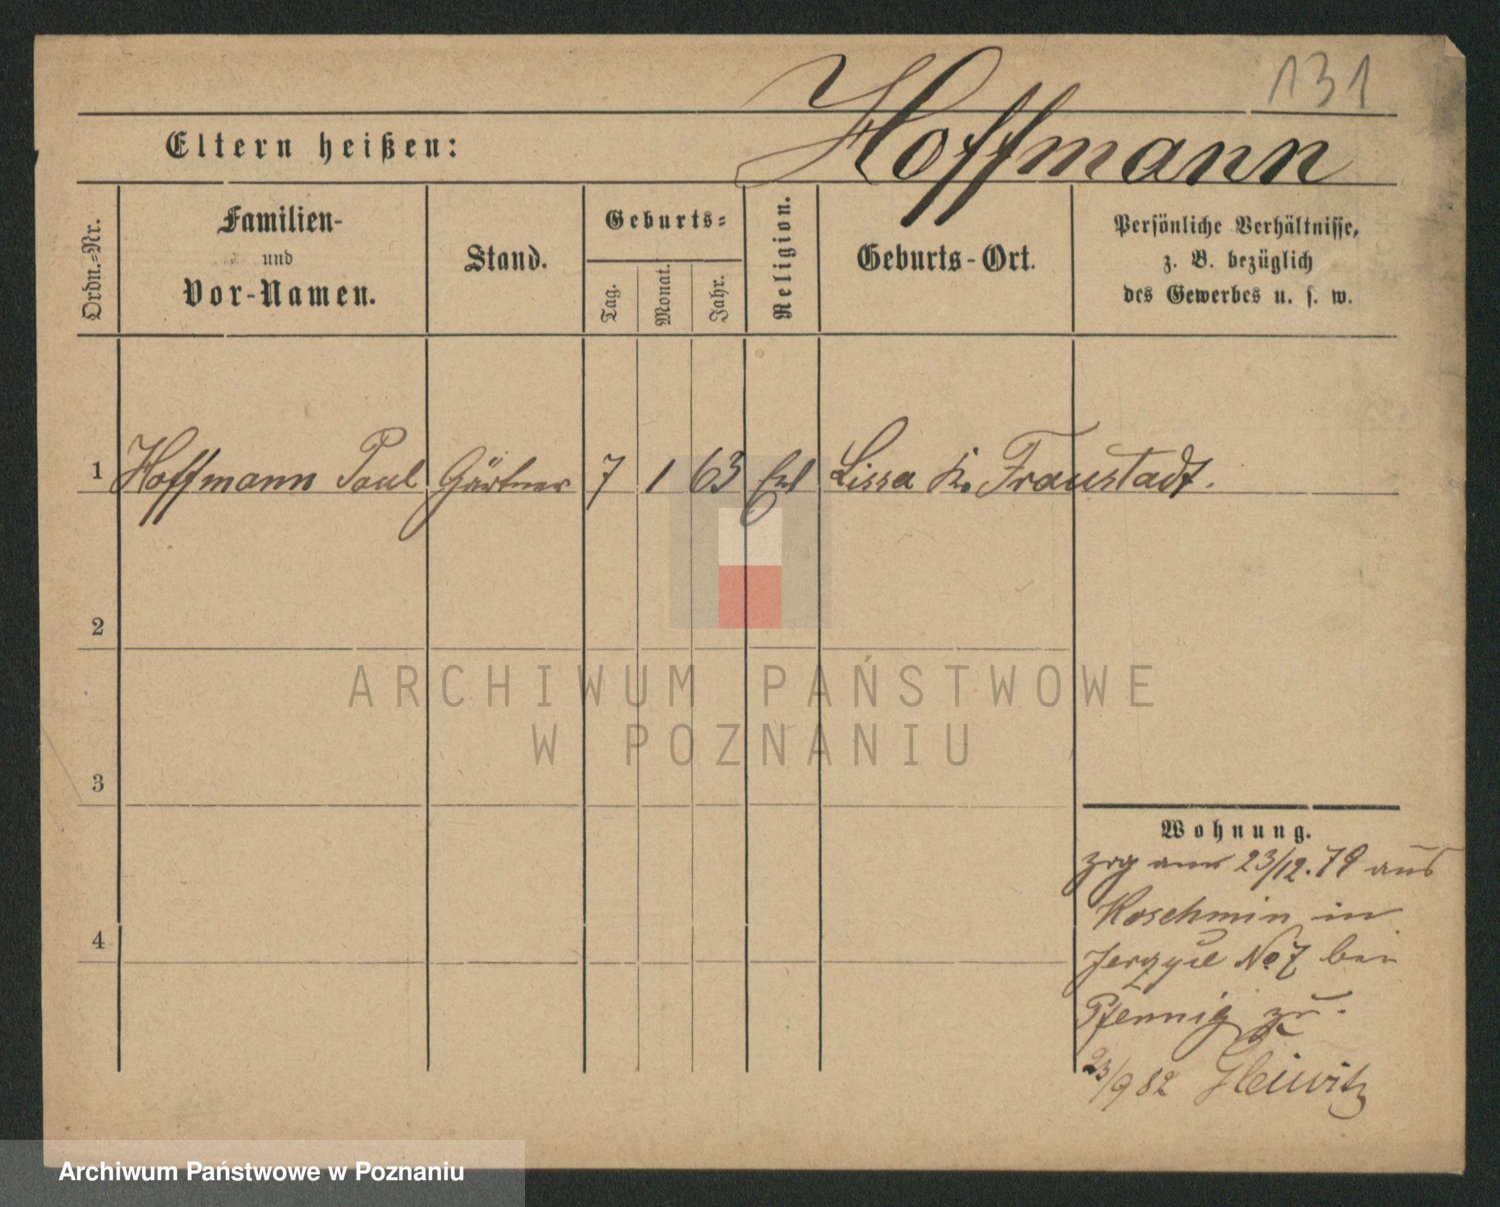 131
Hoffmann
Eltern heißen:
Ordn.-Nr.
Familien-
und
Vor-Namen.
Stand.
Geburts-
Tag.
Monat.
Jahr.
Religion.
Geburts-Ort.
Persönliche Verhältnisse,
z. B. bezüglich
des Gewerbes u. s. w.
1 Hoffmann Paul Gärtner 7 1 63 Evl Lissa K. Fraustadt.
2
3
4
Wohnung.
zog am 23/12.79 aus
Koschmin in
No 7 bei
Pfennig zu.
23/9 82 Gleiwitz
ARCHIWUM PAŃSTWOWE
W POZNANIU
Archiwum Państwowe w Poznaniu